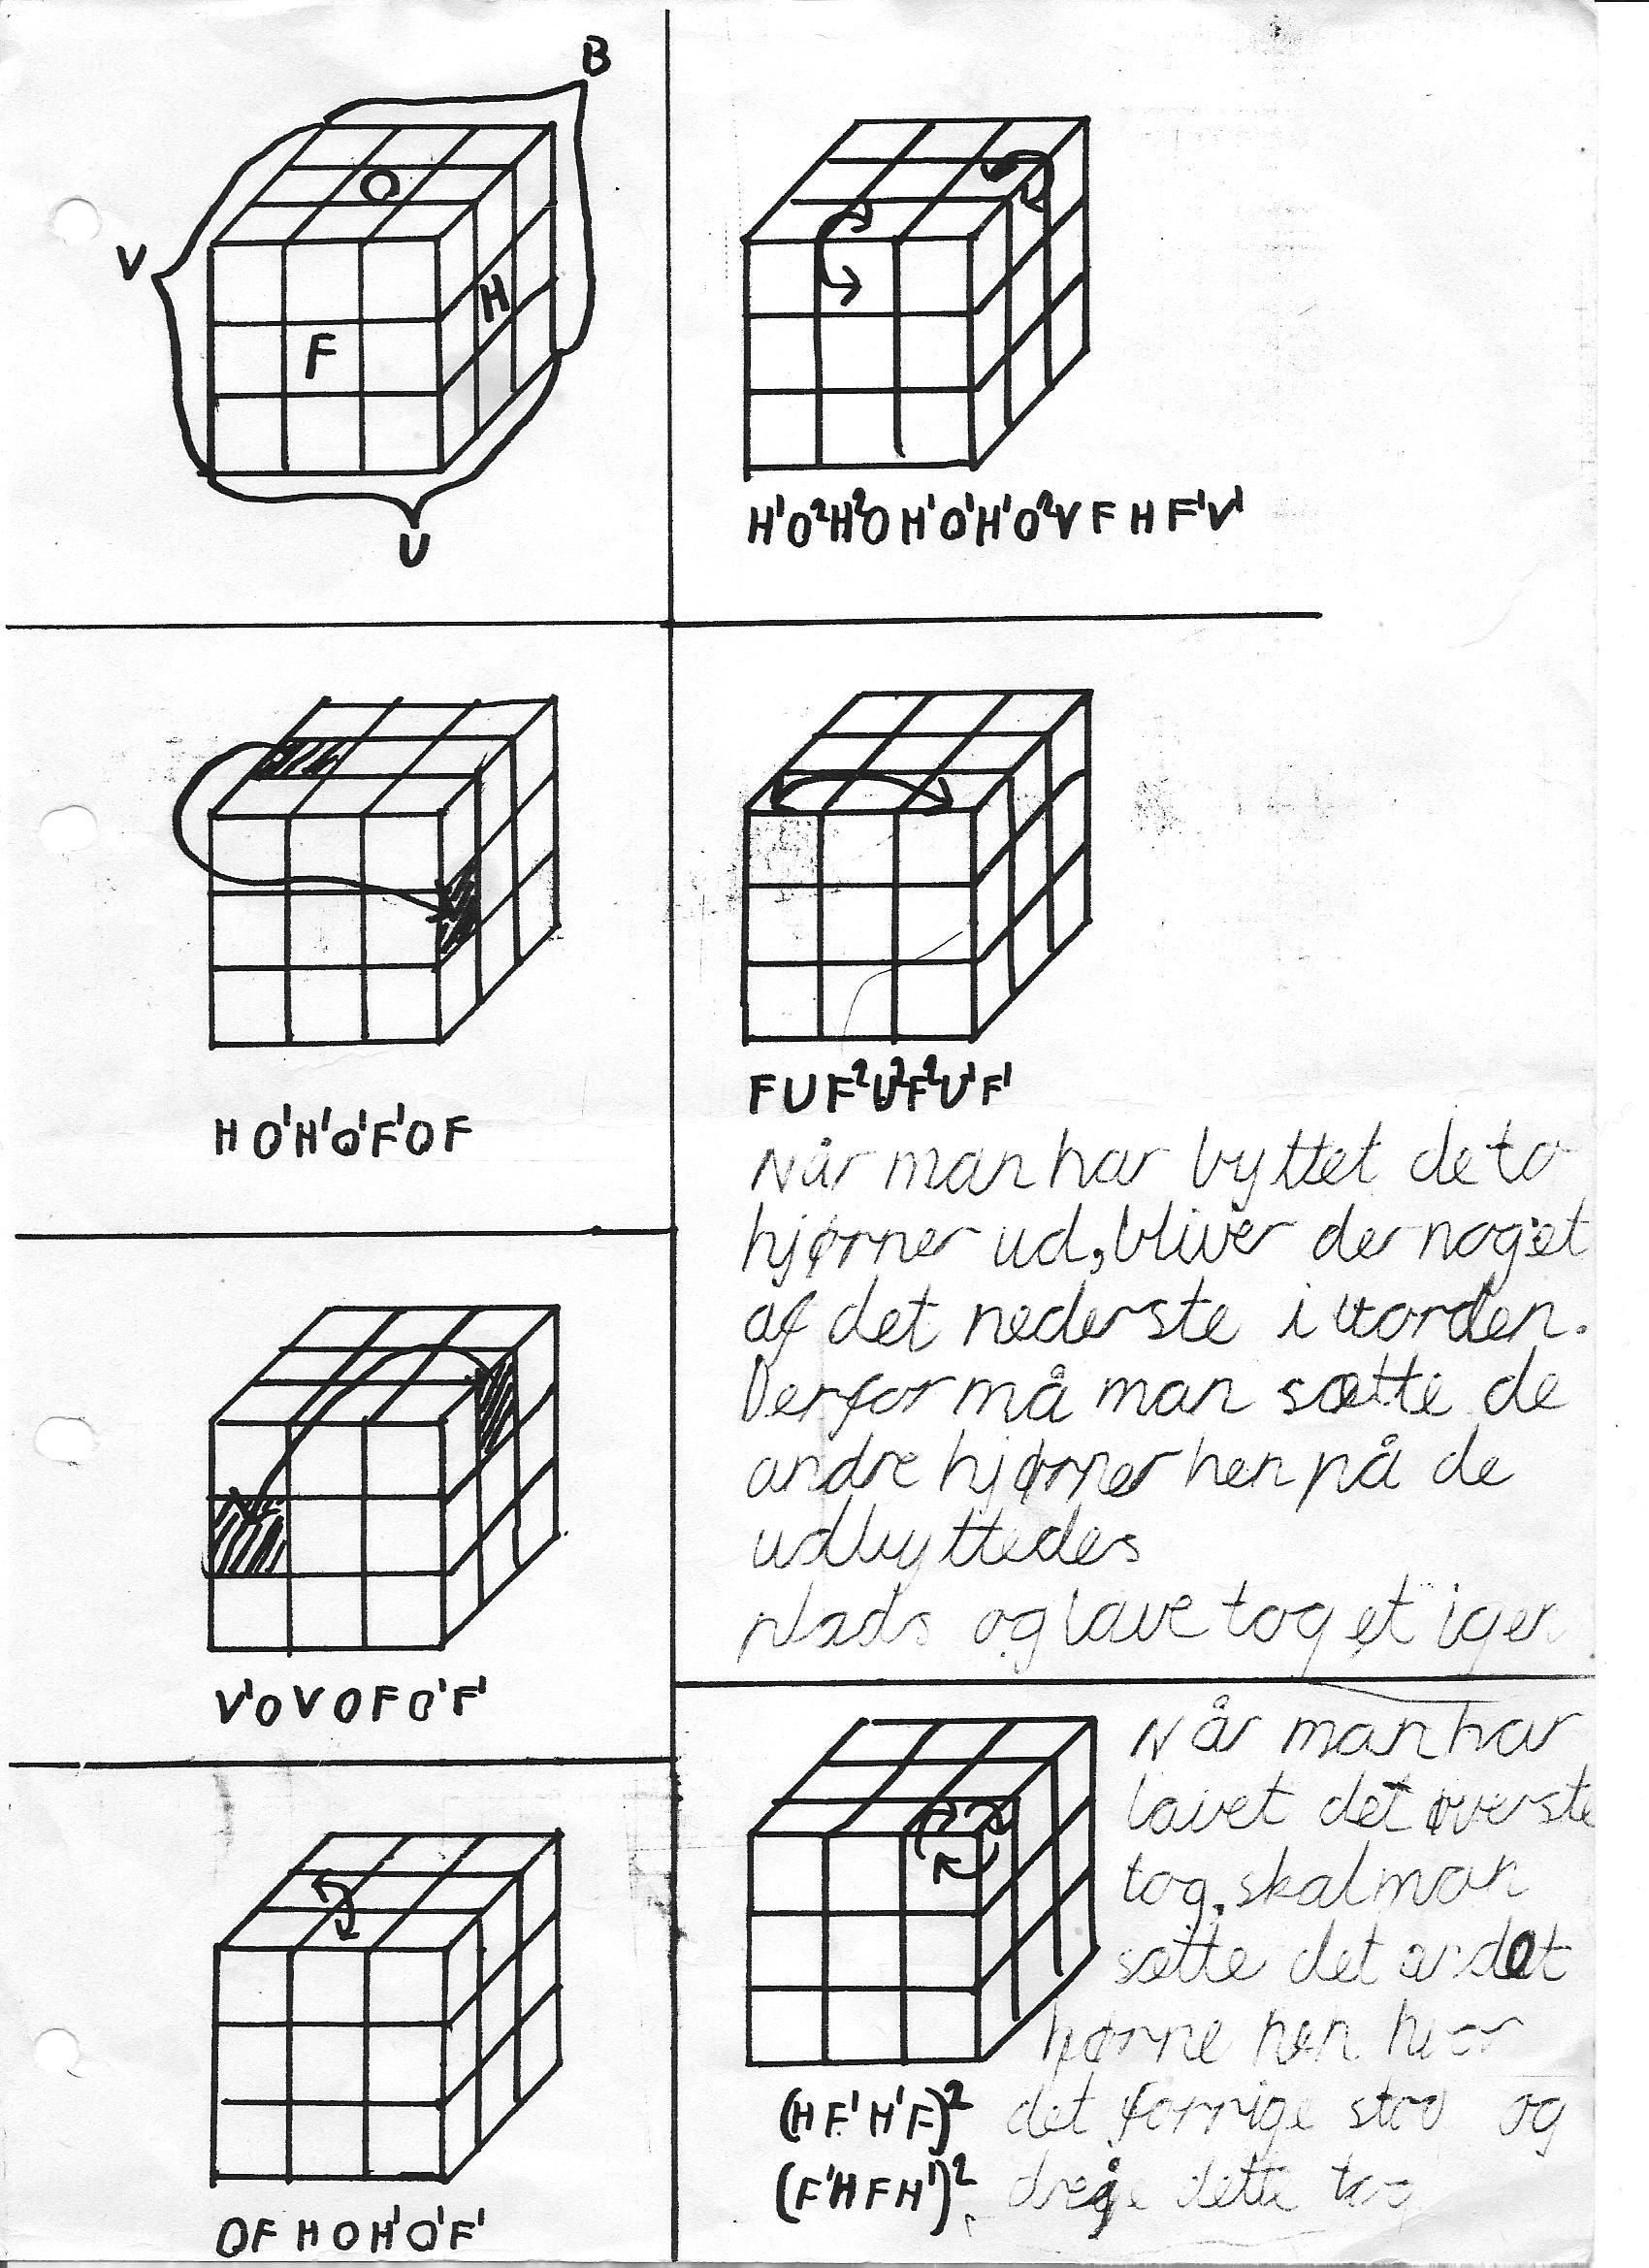 B
V
O
H
F
U
H'O²H²OH'O'H'O²VFHF'V'
HO'H'O'F'OF
FUF²U²F²U'F'
Når man har byttet de to
hjørner ud, bliver der noget
af det nederste i uorden.
Derfor må man sætte de
andre hjørner hen på de
udbyttedes
plads og lave toget igen
V'OVOFO'F'
Når man har
lavet det øverste
tog, skal man
sætte det andet
hjørne hen hvor
det forrige stod og
dreje dette tog
(HF'H'F)²
(F'HFH')²
OFHOH'O'F'